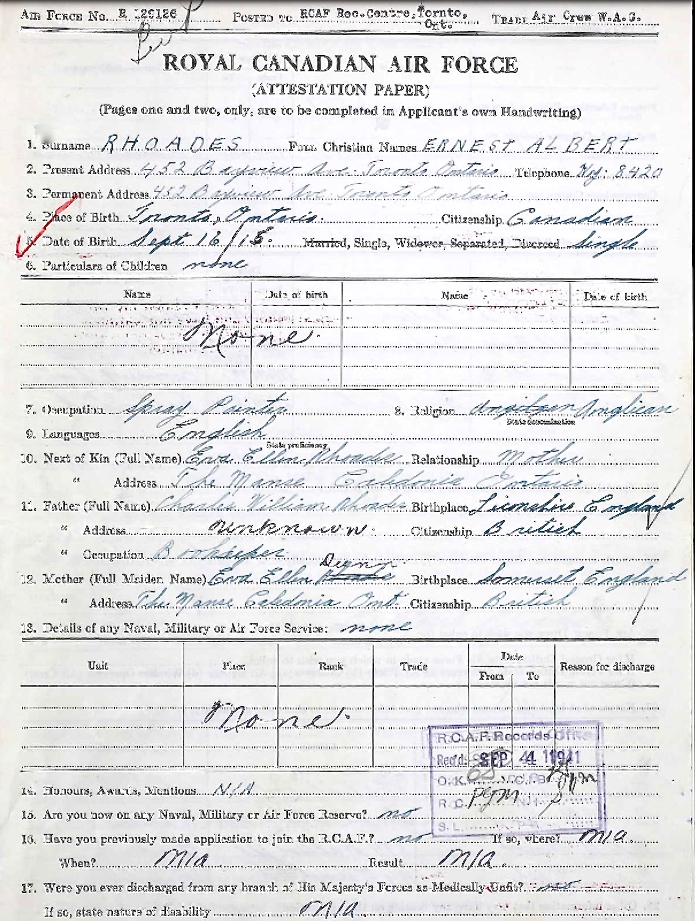 AIR FORCE No. R 129126 POSTED TO RCAF Rec. Centre, Tornto, Ont. TRADE Air Crew W.A.G.
ROYAL CANADIAN AIR FORCE
(ATTESTATION PAPER)
(Pages one and two, only, are to be completed in Applicant's own Handwriting)
1. Surname RHOADES Full Christian Names ERNEST ALBERT
2. Present Address 452 Bayview Ave Toronto Ontario Telephone Hy: 8420
3. Permanent Address 452 Bayview Ave Toronto Ontario
4. Place of Birth Toronto, Ontario. Citizenship Canadian
5. Date of Birth Sept 16/15. Married, Single, Widower, Separated, Divorced Single
6. Particulars of Children none
Name Date of birth Name Date of birth
None.
7. Occupation Spray Painter 8. Religion Anglican
State denomination
9. Languages English
State proficiency
10. Next of Kin (Full Name) Eva Ellen Rhoades Relationship Mother
" Address The Manse Caledonia Ontario
11. Father (Full Name) Charles William Rhoades Birthplace England
" Address unknown. Citizenship British
" Occupation
12. Mother (Full Maiden Name) Eva Ellen Birthplace Somerset England
" Address The Manse Caledonia Ont. Citizenship British
13. Details of any Naval, Military or Air Force Service: none
Unit Place Rank Trade Date From To Reason for discharge
None.
R.C.A.F. Records Office
Rec'd: SEP 4 1941
O.K.
R.C.
S.L.
14. Honours, Awards, Mentions N/A
15. Are you now on any Naval, Military or Air Force Reserve? no
16. Have you previously made application to join the R.C.A.F.? no If so, where? N/a
When? N/a Result N/a.
17. Were you ever discharged from any branch of His Majesty's Forces as Medically Unfit? no
If so, state nature of disability N/a.